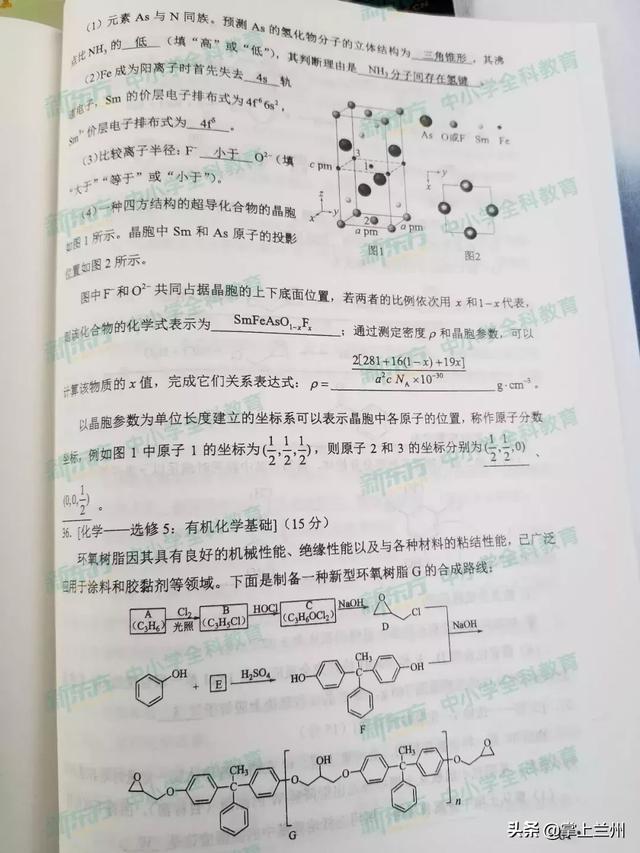 (1) 元素 As 与 N 同族。预测 As 的氢化物分子的立体结构为 三角锥形，其沸
点比NH₃的 低 (填“高”或“低”)，其判断理由是 NH₃分子间存在氢键 。
(2)Fe 成为阳离子时首先失去 4s 轨
道电子，Sm 的价层电子排布式为4f⁶6s²，
Sm³⁺价层电子排布式为 4f⁵ 。
(3)比较离子半径：F⁻ 小于 O²⁻(填
“大于”“等于”或“小于”)。
(4)一种四方结构的超导化合物的晶胞
如图 1 所示。晶胞中 Sm 和 As 原子的投影
位置如图 2 所示。
c pm
a pm
a pm
x
y
z
1
2
3
图1
As O或F Sm Fe
x
y
图2
图中 F⁻和 O²⁻共同占据晶胞的上下底面位置，若两者的比例依次用 x 和1−x代表，
则该化合物的化学式表示为 SmFeAsO₁₋ₓFₓ ；通过测定密度 ρ 和晶胞参数，可以
计算该物质的 x 值，完成它们关系表达式：ρ= 2[281+16(1−x)+19x] / a²c N_A×10⁻³⁰ g·cm⁻³。
以晶胞参数为单位长度建立的坐标系可以表示晶胞中各原子的位置，称作原子分数
坐标，例如图 1 中原子 1 的坐标为(1/2,1/2,1/2)，则原子 2 和 3 的坐标分别为(1/2,1/2,0) 、
(0,0,1/2) 。
36. [化学——选修 5：有机化学基础] (15 分)
环氧树脂因其具有良好的机械性能、绝缘性能以及与各种材料的粘结性能，已广泛
应用于涂料和胶黏剂等领域。下面是制备一种新型环氧树脂 G 的合成路线：
A (C₃H₆) Cl₂ 光照 B (C₃H₅Cl) HOCl C (C₃H₆OCl₂) NaOH O Cl D
NaOH
OH + E H₂SO₄ HO CH₃ OH F
O O CH₃ O OH O CH₃ O O n
G
新东方 中小学全科教育
头条 @掌上兰州